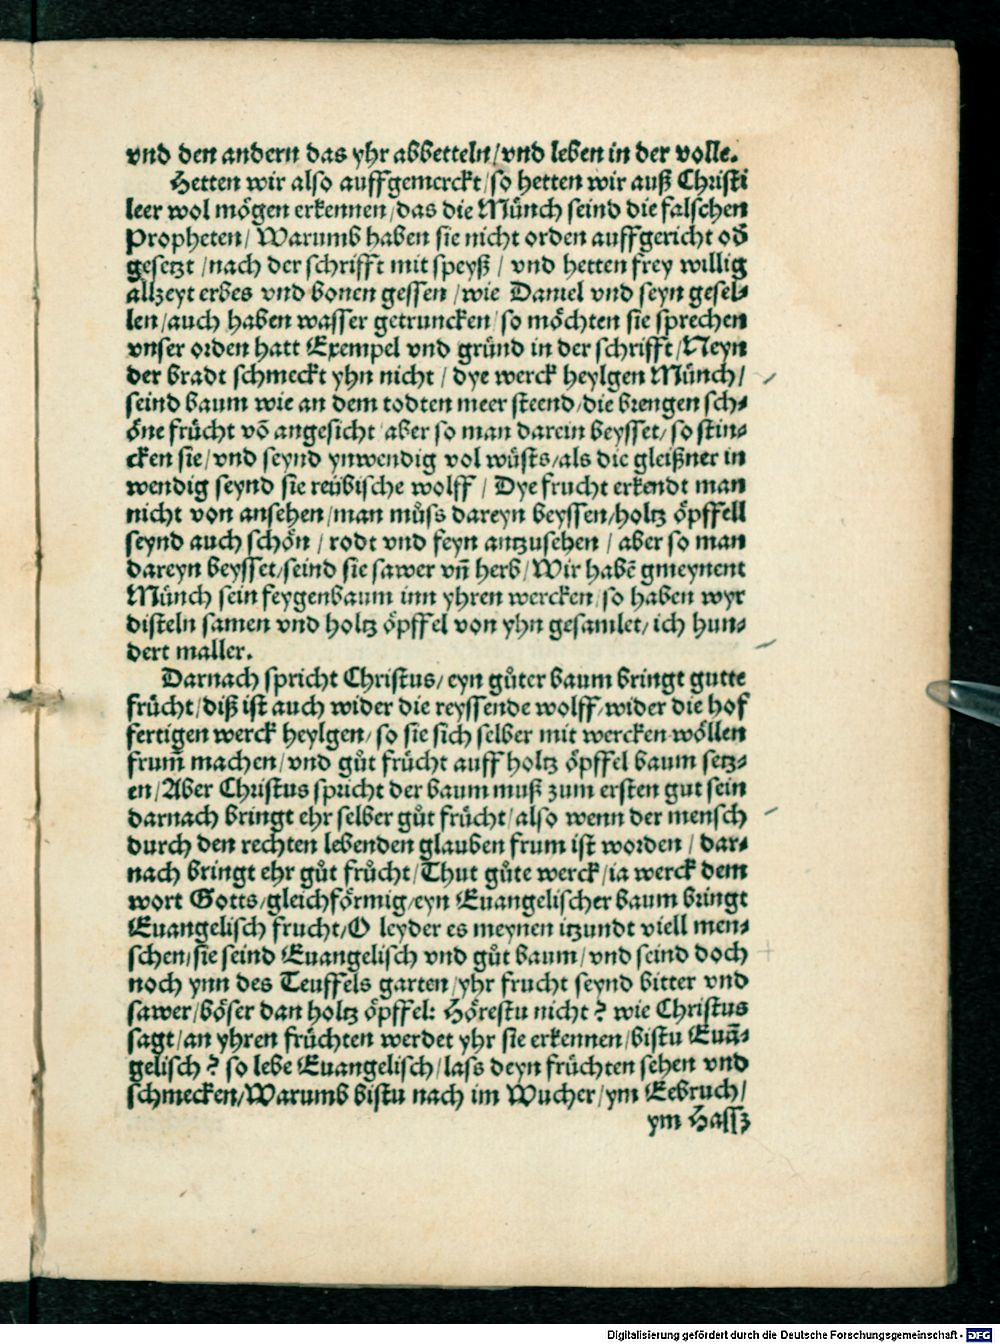 vnd den andern das yhr abbetteln/vnd leben in der volle.
Hetten wir also auffgemerckt/so hetten wir auß Christi
leer wol mögen erkennen/das die Münch seind die falschen
Propheten/ Warumb haben sie nicht orden auffgericht od̄
gesetzt /nach der schrifft mit speyß / vnd hetten frey willig
allzeyt erbes vnd bonen gessen /wie Daniel vnd seyn gesel⸗
len/auch haben wasser getruncken/so möchten sie sprechen
vnser orden hatt Exempel vnd gründ in der schrifft/Neyn
der bradt schmeckt yhn nicht / dye werck heylgen Münch/
seind baum wie an dem todten meer steend/die brengen sch⸗
öne frücht vō angesicht/aber so man darein beysset/so stin⸗
cken sie/vnd seynd ynwendig vol wüsts/als die gleißner in
wendig seynd sie reübische wolff / Dye frucht erkendt man
nicht von ansehen/man můss dareyn beyssen/holtz öpffell
seynd auch schön / rodt vnd feyn antzusehen / aber so man
dareyn beysset/seind sie sawer vn̄ herb/Wir habē gmeynent
Münch sein feygenbaum inn yhren wercken/so haben wyr
disteln samen vnd holtz öpffel von yhn gesamlet/ich hun⸗
dert maller.
Darnach spricht Christus/eyn gůter baum bringt gutte
frücht/diß ist auch wider die reyssende wolff/wider die hof
fertigen werck heylgen/so sie sich selber mit wercken wöllen
frum̄ machen/vnd gůt frücht auff holtz öpffel baum setz⸗
en/Aber Christus spricht der baum muß zum ersten gut sein
darnach bringt ehr selber gůt frücht/also wenn der mensch
durch den rechten lebenden glauben frum ist worden / dar⸗
nach bringt ehr gůt frůcht/Thut gůte werck/ia werck dem
wort Gotts/gleichförmig/eyn Euangelischer baum bringt
Euangelisch frucht/O leyder es meynen itzundt viell men⸗
schen/sie seind Euangelisch vnd gůt baum/vnd seind doch
noch ynn des Teuffels garten/yhr frucht seynd bitter vnd
sawer/böser dan holtz öpffel: Hörestu nicht? wie Christus
sagt/an yhren früchten werdet yhr sie erkennen/bistu Euā⸗
gelisch? so lebe Euangelisch/lass deyn früchten sehen vnd
schmecken/Warumb bistu nach im Wucher/ym Eebruch/
ym Hassz
Digitalisierung gefördert durch die Deutsche Forschungsgemeinschaft - DFG